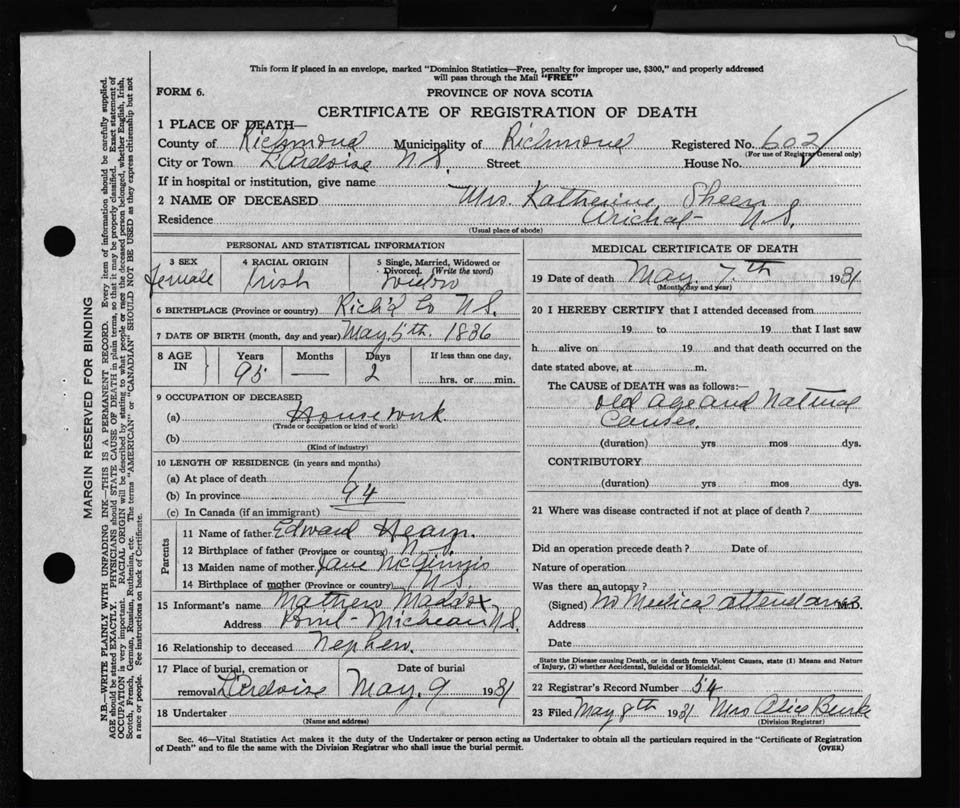 This form if placed in an envelope, marked "Dominion Statistics—Free, penalty for improper use, $300," and properly addressed
will pass through the Mail "FREE"
FORM 6.
PROVINCE OF NOVA SCOTIA
CERTIFICATE OF REGISTRATION OF DEATH
1 PLACE OF DEATH—
County of Richmond Municipality of Richmond Registered No. 602
(For use of Registrar General only)
City or Town L'Ardoise N.S. Street House No.
If in hospital or institution, give name
2 NAME OF DECEASED Mrs. Katherine Sheen
Residence Arichat N.S.
(Usual place of abode)
PERSONAL AND STATISTICAL INFORMATION
3 SEX
female
4 RACIAL ORIGIN
Irish
5 Single, Married, Widowed or
Divorced. (Write the word)
Widow
6 BIRTHPLACE (Province or country) Rich'd Co N.S.
7 DATE OF BIRTH (month, day and year) May 5th. 1836
8 AGE IN
Years Months Days If less than one day,
95 — 2 hrs. or min.
9 OCCUPATION OF DECEASED
(a) Housework.
(Trade or occupation or kind of work)
(b)
(Kind of industry)
10 LENGTH OF RESIDENCE (in years and months)
(a) At place of death
(b) In province 94
(c) In Canada (if an immigrant)
Parents
11 Name of father Edward Hearn.
12 Birthplace of father (Province or country) N.S.
13 Maiden name of mother Jane McGinnis
14 Birthplace of mother (Province or country) N.S.
15 Informant's name Mathew Maddox
Address N.S.
16 Relationship to deceased Nephew.
17 Place of burial, cremation or
removal L'Ardoise
Date of burial
May 9 1931
18 Undertaker
(Name and address)
MEDICAL CERTIFICATE OF DEATH
19 Date of death May. 7.th 1931
(Month, day and year)
20 I HEREBY CERTIFY that I attended deceased from
19 to 19 that I last saw
h alive on 19 and that death occurred on the
date stated above, at m.
The CAUSE of DEATH was as follows:—
old age and Natural
Causes.
(duration) yrs mos dys.
CONTRIBUTORY
(duration) yrs mos dys.
21 Where was disease contracted if not at place of death?
Did an operation precede death? Date of
Nature of operation
Was there an autopsy?
(Signed) No Medical attendance M.D.
Address
Date
State the Disease causing Death, or in death from Violent Causes, state (1) Means and Nature
of Injury, (2) whether Accidental, Suicidal or Homicidal.
22 Registrar's Record Number 54
23 Filed May 8th 1931 Mrs Alice Burke
(Division Registrar)
Sec. 46—Vital Statistics Act makes it the duty of the Undertaker or person acting as Undertaker to obtain all the particulars required in the "Certificate of Registration
of Death" and to file the same with the Division Registrar who shall issue the burial permit.
(OVER)
MARGIN RESERVED FOR BINDING
N.B.—WRITE PLAINLY WITH UNFADING INK—THIS IS A PERMANENT RECORD. Every item of information should be carefully supplied.
AGE should be stated EXACTLY. PHYSICIANS should STATE CAUSE OF DEATH in plain terms, so that it may be properly classified. Exact statement of
OCCUPATION is very important. RACIAL ORIGIN will be described by stating to what people or race the deceased person belonged, whether English, Irish,
Scotch, French, German, Russian, Ruthenian, etc. The terms "AMERICAN" or "CANADIAN" SHOULD NOT BE USED as they express citizenship but not
a race or people. See instructions on back of Certificate.